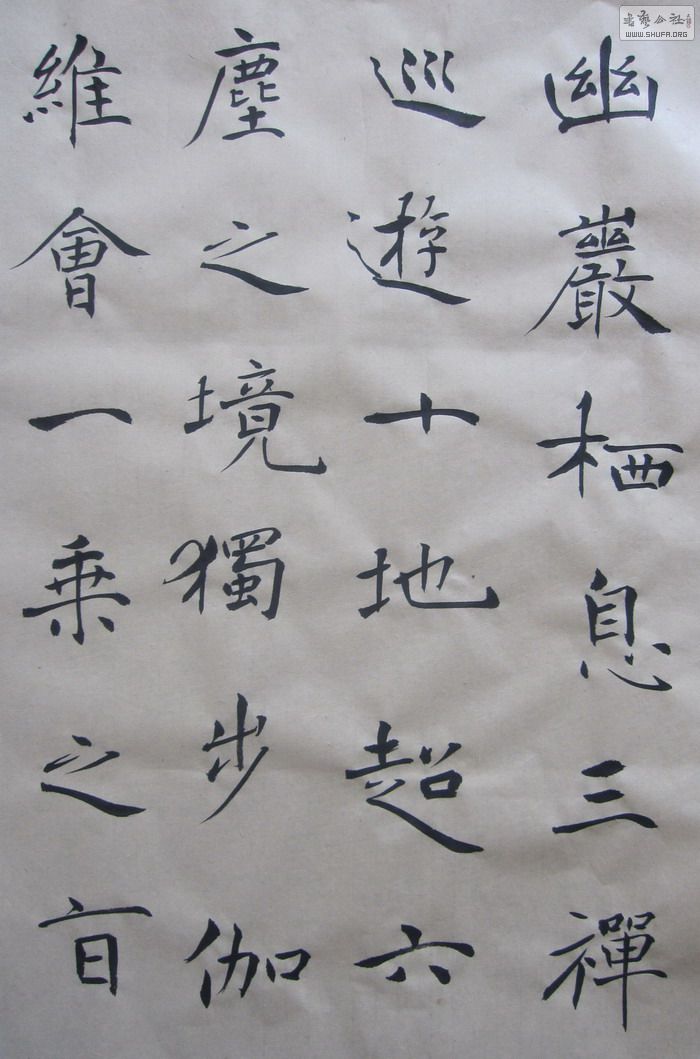 幽巖栖息三禪
巡遊十地超六
塵之境獨步伽
維會一乗之㫖
書藝公社
WWW.SHUFA.ORG